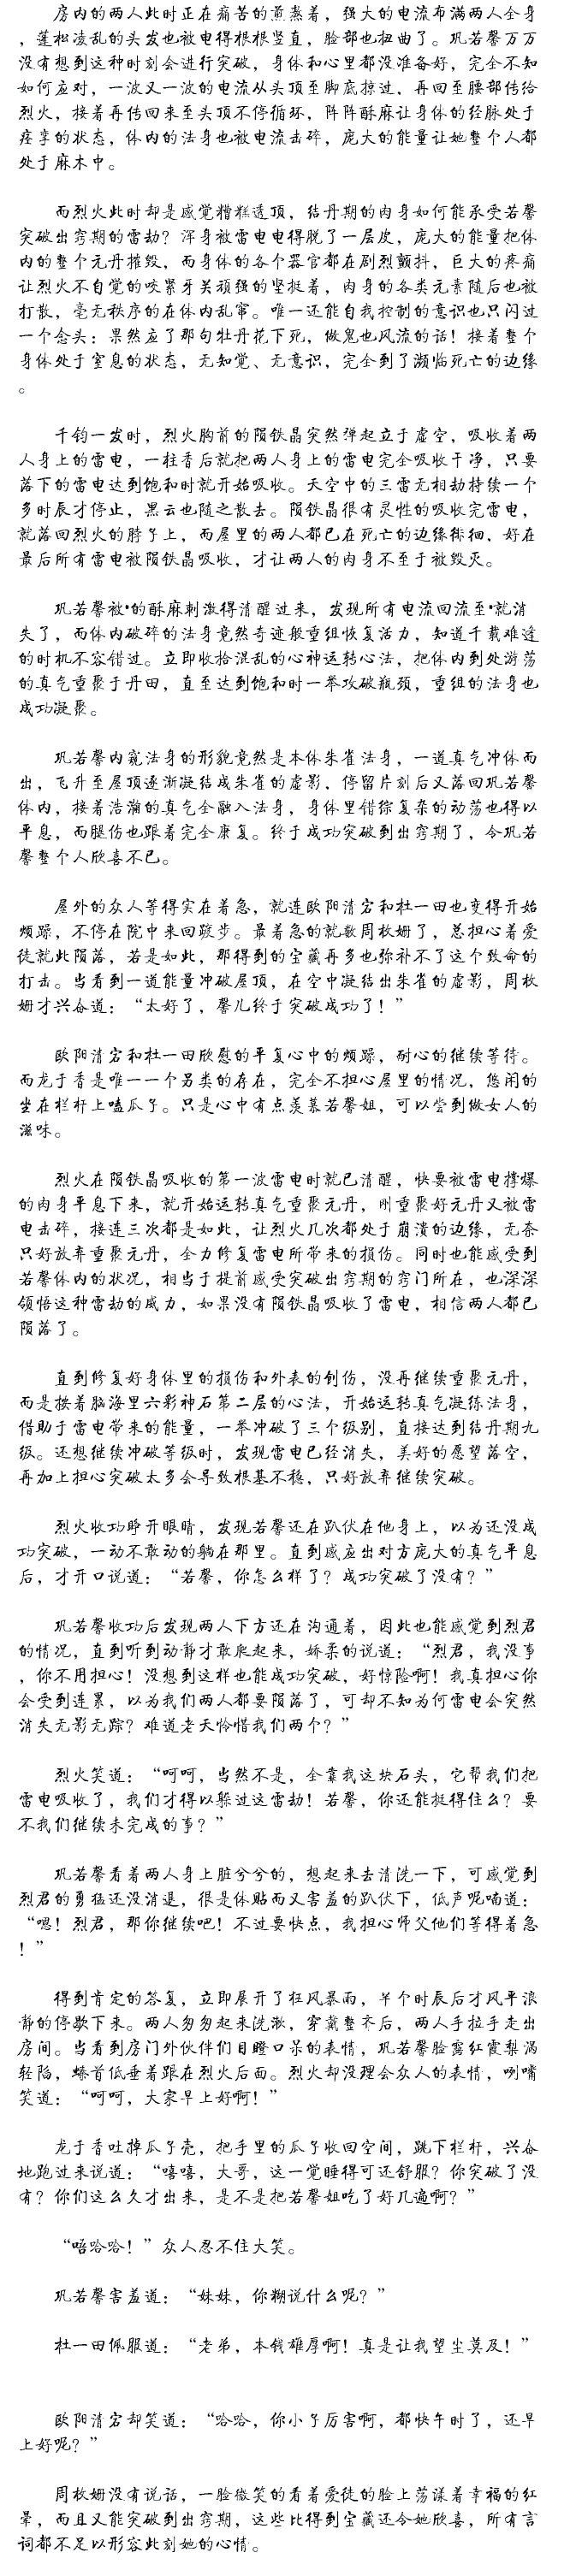 房内的两人此时正在痛苦的煎熬着，强大的电流布满两人全身
，蓬松凌乱的头发也被电得根根竖直，脸部也扭曲了。巩若馨万万
没有想到这种时刻会进行突破，身体和心里都没准备好，完全不知
如何应对，一波又一波的电流从头顶至脚底掠过，再回至腰部传给
烈火，接着再传回来至头顶不停循环，阵阵酥麻让身体的经脉处于
痉挛的状态，体内的法身也被电流击碎，庞大的能量让她整个人都
处于麻木中。
而烈火此时却是感觉糟糕透顶，结丹期的肉身如何能承受若馨
突破出窍期的雷劫？浑身被雷电电得脱了一层皮，庞大的能量把体
内的整个元丹摧毁，而身体的各个器官都在剧烈颤抖，巨大的疼痛
让烈火不自觉的咬紧牙关顽强的坚挺着，肉身的各类元素随后也被
打散，毫无秩序的在体内乱窜。唯一还能自我控制的意识也只闪过
一个念头：果然应了那句牡丹花下死，做鬼也风流的话！接着整个
身体处于窒息的状态，无知觉、无意识，完全到了濒临死亡的边缘
。
千钧一发时，烈火胸前的陨铁晶突然弹起立于虚空，吸收着两
人身上的雷电，一柱香后就把两人身上的雷电完全吸收干净，只要
落下的雷电达到饱和时就开始吸收。天空中的三雷无相劫持续一个
多时辰才停止，黑云也随之散去。陨铁晶很有灵性的吸收完雷电，
就落回烈火的脖子上，而屋里的两人都已在死亡的边缘徘徊，好在
最后所有雷电被陨铁晶吸收，才让两人的肉身不至于被毁灭。
巩若馨被的酥麻刺激得清醒过来，发现所有电流回流至就消
失了，而体内破碎的法身竟然奇迹般重组恢复活力，知道千载难逢
的时机不容错过。立即收拾混乱的心神运转心法，把体内到处游荡
的真气重聚于丹田，直至达到饱和时一举攻破瓶颈，重组的法身也
成功凝聚。
巩若馨内窥法身的形貌竟然是本体朱雀法身，一道真气冲体而
出，飞升至屋顶逐渐凝结成朱雀的虚影，停留片刻后又落回巩若馨
体内，接着浩瀚的真气全融入法身，身体里错综复杂的动荡也得以
平息，而腿伤也跟着完全康复。终于成功突破到出窍期了，令巩若
馨整个人欣喜不已。
屋外的众人等得实在着急，就连欧阳清宕和杜一田也变得开始
烦躁，不停在院中来回踱步。最着急的就数周枚姗了，总担心着爱
徒就此陨落，若是如此，那得到的宝藏再多也弥补不了这个致命的
打击。当看到一道能量冲破屋顶，在空中凝结出朱雀的虚影，周枚
姗才兴奋道：“太好了，馨儿终于突破成功了！”
欧阳清宕和杜一田欣慰的平复心中的烦躁，耐心的继续等待。
而龙于香是唯一一个另类的存在，完全不担心屋里的情况，悠闲的
坐在栏杆上嗑瓜子。只是心中有点羡慕若馨姐，可以尝到做女人的
滋味。
烈火在陨铁晶吸收的第一波雷电时就已清醒，快要被雷电撑爆
的肉身平息下来，就开始运转真气重聚元丹，刚重聚好元丹又被雷
电击碎，接连三次都是如此，让烈火几次都处于崩溃的边缘，无奈
只好放弃重聚元丹，全力修复雷电所带来的损伤。同时也能感受到
若馨体内的状况，相当于提前感受突破出窍期的窍门所在，也深深
领悟这种雷劫的威力，如果没有陨铁晶吸收了雷电，相信两人都已
陨落了。
直到修复好身体里的损伤和外表的创伤，没再继续重聚元丹，
而是按着脑海里六彩神石第二层的心法，开始运转真气凝练法身，
借助于雷电带来的能量，一举冲破了三个级别，直接达到结丹期九
级。还想继续冲破等级时，发现雷电已经消失，美好的愿望落空，
再加上担心突破太多会导致根基不稳，只好放弃继续突破。
烈火收功睁开眼睛，发现若馨还在趴伏在他身上，以为还没成
功突破，一动不敢动的躺在那里。直到感应出对方庞大的真气平息
后，才开口说道：“若馨，你怎么样了？成功突破了没有？”
巩若馨收功后发现两人下方还在沟通着，因此也能感觉到烈君
的情况，直到听到动静才敢爬起来，娇柔的说道：“烈君，我没事
，你不用担心！没想到这样也能成功突破，好惊险啊！我真担心你
会受到连累，以为我们两人都要陨落了，可却不知为何雷电会突然
消失无影无踪？难道老天怜惜我们两个？”
烈火笑道：“呵呵，当然不是，全靠我这块石头，它帮我们把
雷电吸收了，我们才得以躲过这雷劫！若馨，你还能挺得住么？要
不我们继续未完成的事？”
巩若馨看着两人身上脏兮兮的，想起来去清洗一下，可感觉到
烈君的勇猛还没消退，很是体贴而又害羞的趴伏下，低声呢喃道：
“嗯！烈君，那你继续吧！不过要快点，我担心师父他们等得着急
！”
得到肯定的答复，立即展开了狂风暴雨，半个时辰后才风平浪
静的停歇下来。两人匆匆起来洗漱，穿戴整齐后，两人手拉手走出
房间。当看到房门外伙伴们目瞪口呆的表情，巩若馨脸露红霞梨涡
轻陷，螓首低垂着跟在烈火后面。烈火却没理会众人的表情，咧嘴
笑道：“呵呵，大家早上好啊！”
龙于香吐掉瓜子壳，把手里的瓜子收回空间，跳下栏杆，兴奋
地跑过来说道：“嘻嘻，大哥，这一觉睡得可还舒服？你突破了没
有？你们这么久才出来，是不是把若馨姐吃了好几遍啊？”
“唔哈哈！”众人忍不住大笑。
巩若馨害羞道：“妹妹，你糊说什么呢？”
杜一田佩服道：“老弟，本钱雄厚啊！真是让我望尘莫及！”
欧阳清宕却笑道：“哈哈，你小子厉害啊，都快午时了，还早
上好呢？”
周枚姗没有说话，一脸微笑的看着爱徒的脸上荡漾着幸福的红
晕，而且又能突破到出窍期，这些比得到宝藏还令她欣喜，所有言
词都不足以形容此刻她的心情。